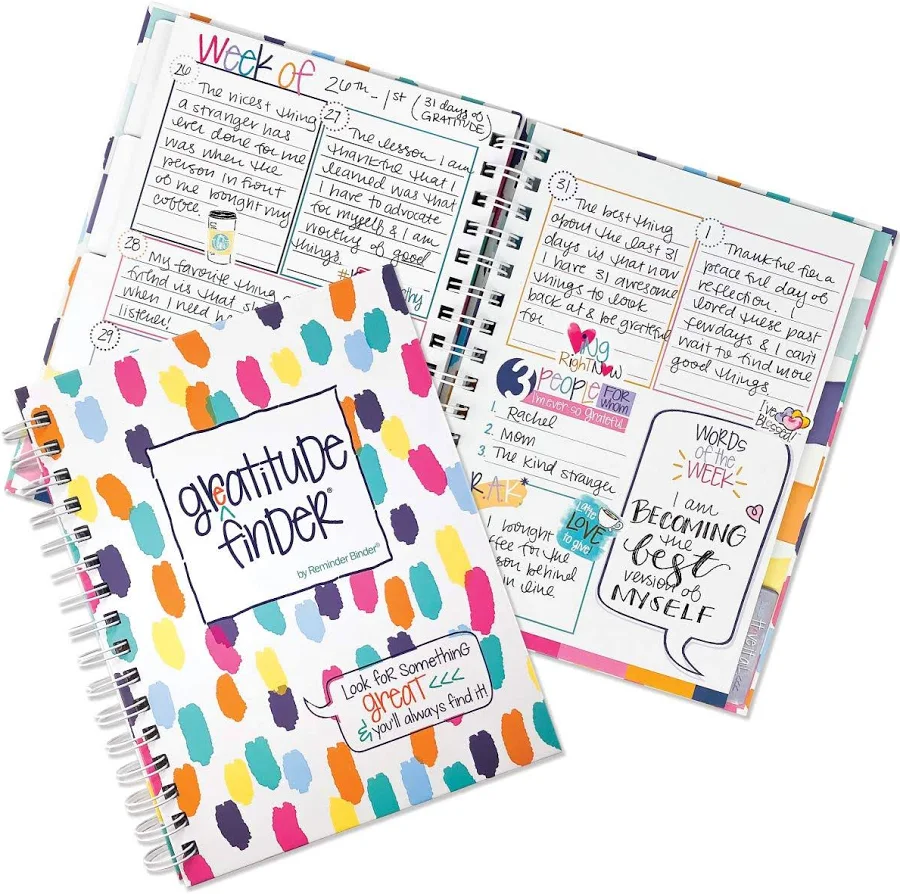 Week of 26th - 1st (31 days of
GRATITUDE)
26
The nicest thing
a stranger has
ever done for me
was when the
person in front
of me bought my
coffee.
27
The lesson I am
thankful that I
learned was that
I have to advocate
for myself & I am
worthy of good
things.
28
My favorite thing
friend is that
when I need
listener!
29
31
The best thing
about the last 31
days is that now
I have 31 awesome
things to look
back at & be grateful
for.
1
Thankful for a
peaceful day of
reflection. I
loved these past
few days & I can't
wait to find more
good things
Right Now
3 PEOPLE FOR
WHOM
I'm ever so grateful
1. Rachel
2. Mom
3. The kind stranger
R.A.K.*
I bought
for the
behind
in line
Latte
LOVE
to give
I've
Blessed!
WORDS
of the
WEEK
I am
BECOMING
the
best
version of
MYSELF
greatitude
finder®
by Reminder Binder®
Look for something
great <<<
& you'll always find it!